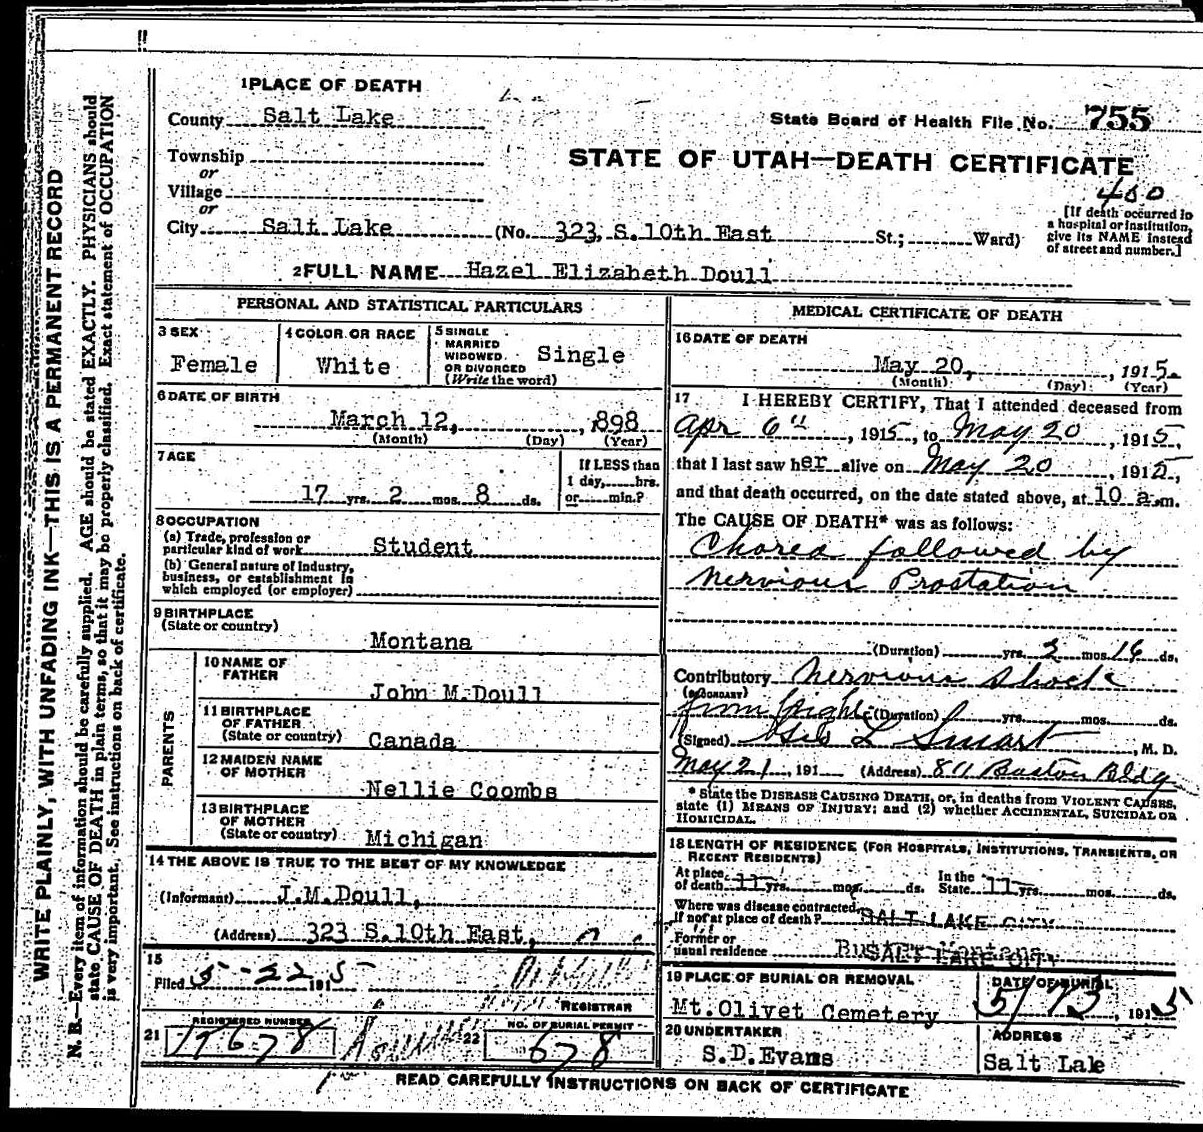 WRITE PLAINLY, WITH UNFADING INK—THIS IS A PERMANENT RECORD
N. B.—Every item of information should be carefully supplied. AGE should be stated EXACTLY. PHYSICIANS should
state CAUSE OF DEATH in plain terms, so that it may be properly classified. Exact statement of OCCUPATION
is very important. See instructions on back of certificate.
1 PLACE OF DEATH
County Salt Lake
State Board of Health File No. 755
Township
or
Village
or
STATE OF UTAH—DEATH CERTIFICATE
460
[If death occurred in
a hospital or institution,
give its NAME instead
of street and number.]
City Salt Lake (No. 323, S.10th East St.; Ward)
2 FULL NAME Hazel Elizabeth Doull
PERSONAL AND STATISTICAL PARTICULARS
3 SEX
Female
4 COLOR OR RACE
White
5 SINGLE
MARRIED
WIDOWED
OR DIVORCED
(Write the word)
Single
6 DATE OF BIRTH
March 12, , 898
(Month) (Day) (Year)
7 AGE
17 yrs. 2 mos. 8 ds.
If LESS than
1 day, hrs.
or min.?
8 OCCUPATION
(a) Trade, profession or
particular kind of work Student
(b) General nature of Industry,
business, or establishment in
which employed (or employer)
9 BIRTHPLACE
(State or country)
Montana
PARENTS
10 NAME OF
FATHER
John M.Doull
11 BIRTHPLACE
OF FATHER
(State or country)
Canada
12 MAIDEN NAME
OF MOTHER
Nellie Coombs
13 BIRTHPLACE
OF MOTHER
(State or country)
Michigan
14 THE ABOVE IS TRUE TO THE BEST OF MY KNOWLEDGE
(Informant) J.M.Doull,
(Address) 323 S.10th East,
15
Filed 5-22 1915
REGISTRAR
21
REGISTERED NUMBER
22
NO. OF BURIAL PERMIT
678
MEDICAL CERTIFICATE OF DEATH
16 DATE OF DEATH
May 20, , 1915.
(Month) (Day) (Year)
17 I HEREBY CERTIFY, That I attended deceased from
Apr 6", 1915, to May 20, 1915,
that I last saw her alive on May 20, 1915,
and that death occurred, on the date stated above, at 10 a.m.
The CAUSE OF DEATH* was as follows:
Chorea followed by
Nervious Prostation
(Duration) yrs. mos. ds.
Contributory Nervious Shock
(SECONDARY)
from fright (Duration) yrs. mos. ds.
(Signed) L Smart, M. D.
May 21, 191 (Address) 811 Boston Bldg
* State the DISEASE CAUSING DEATH, or, in deaths from VIOLENT CAUSES,
state (1) MEANS OF INJURY; and (2) whether ACCIDENTAL, SUICIDAL OR
HOMICIDAL.
18 LENGTH OF RESIDENCE (FOR HOSPITALS, INSTITUTIONS, TRANSIENTS, OR
RECENT RESIDENTS)
At place
of death 11 yrs. mos. ds.
In the
State 11 yrs. mos. ds.
Where was disease contracted,
If not at place of death? SALT LAKE CITY
Former or
usual residence SALT LAKE CITY
19 PLACE OF BURIAL OR REMOVAL
Mt.Olivet Cemetery
DATE OF BURIAL
5/23, 1915
20 UNDERTAKER
S.D.Evans
ADDRESS
Salt Lake
READ CAREFULLY INSTRUCTIONS ON BACK OF CERTIFICATE